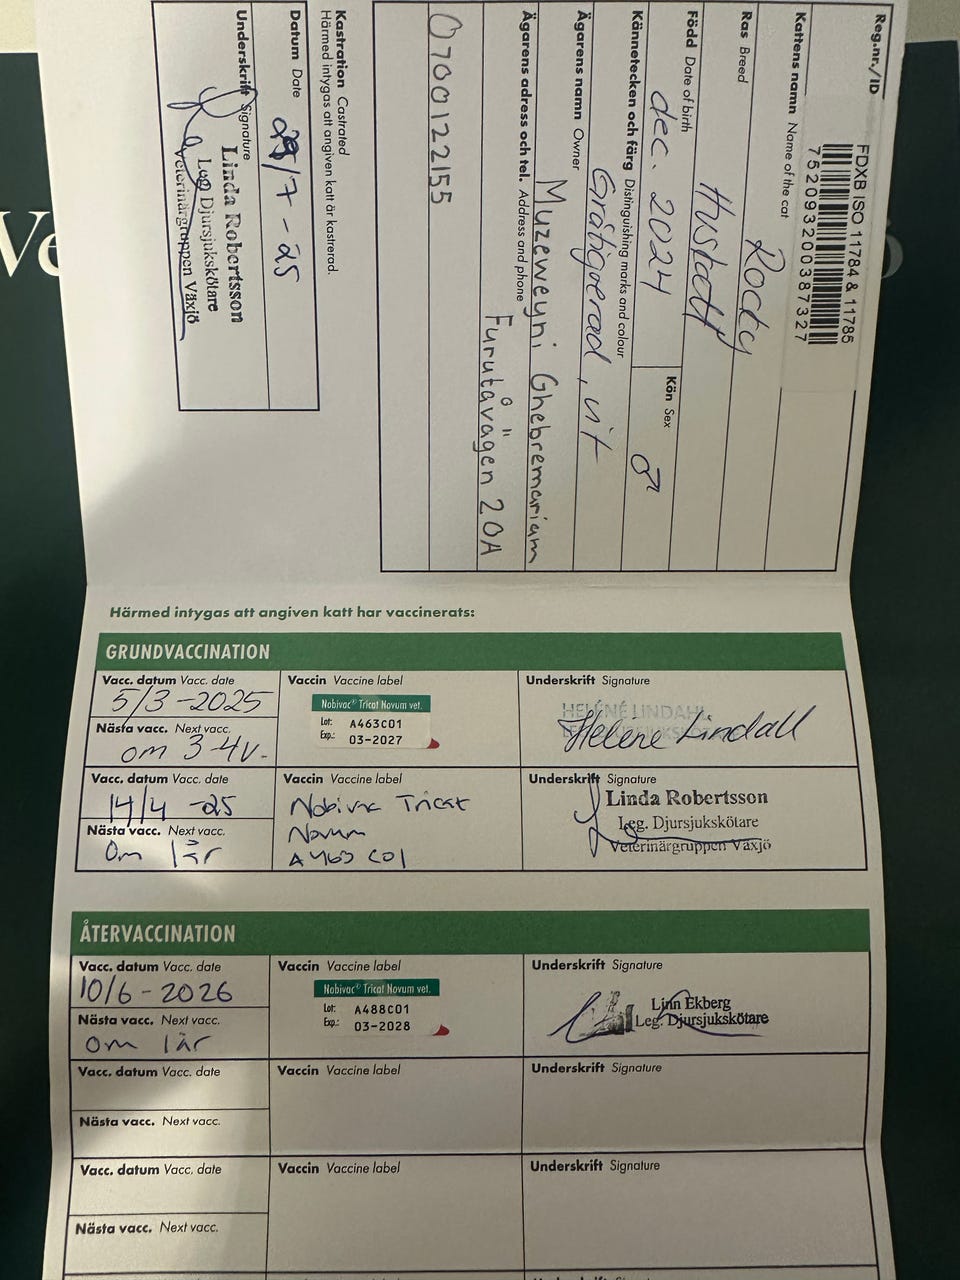 Reg.nr./ID
FDXB ISO 11784 & 11785
752093200387327
Kattens namn Name of the cat
Rocky
Ras Breed
Huskatt
Född Date of birth
dec. 2024
Kön Sex
♂
Kännetecken och färg Distinguishing marks and colour
Gråtigrerad, vit
Ägarens namn Owner
Muzeweyni Ghebremariam
Ägarens adress och tel. Address and phone
Furutåvägen 20A
0700122155
Kastration Castrated
Härmed intygas att angiven katt är kastrerad.
Datum Date
/7 - 25
Underskrift Signature
Linda Robertsson
Leg Djursjukskötare
Veterinärgruppen Växjö
Härmed intygas att angiven katt har vaccinerats:
GRUNDVACCINATION
Vacc. datum Vacc. date
5/3 -2025
Nästa vacc. Next vacc.
om 3-4v.
Vaccin Vaccine label
Nobivac® Tricat Novum vet.
Lot: A463C01
Exp.: 03-2027
Underskrift Signature
HELÉNE LINDAHL
Heléne Lindahl
Vacc. datum Vacc. date
14/4 -25
Nästa vacc. Next vacc.
Om 1år
Vaccin Vaccine label
Nobivac Tricat
Novum
A463 C01
Underskrift Signature
Linda Robertsson
Leg. Djursjukskötare
Veterinärgruppen Växjö
ÅTERVACCINATION
Vacc. datum Vacc. date
10/6 - 2026
Nästa vacc. Next vacc.
om 1år
Vaccin Vaccine label
Nobivac® Tricat Novum vet.
Lot: A488C01
Exp.: 03-2028
Underskrift Signature
Linn Ekberg
Leg. Djursjukskötare
Vacc. datum Vacc. date
Nästa vacc. Next vacc.
Vaccin Vaccine label
Underskrift Signature
Vacc. datum Vacc. date
Nästa vacc. Next vacc.
Vaccin Vaccine label
Underskrift Signature